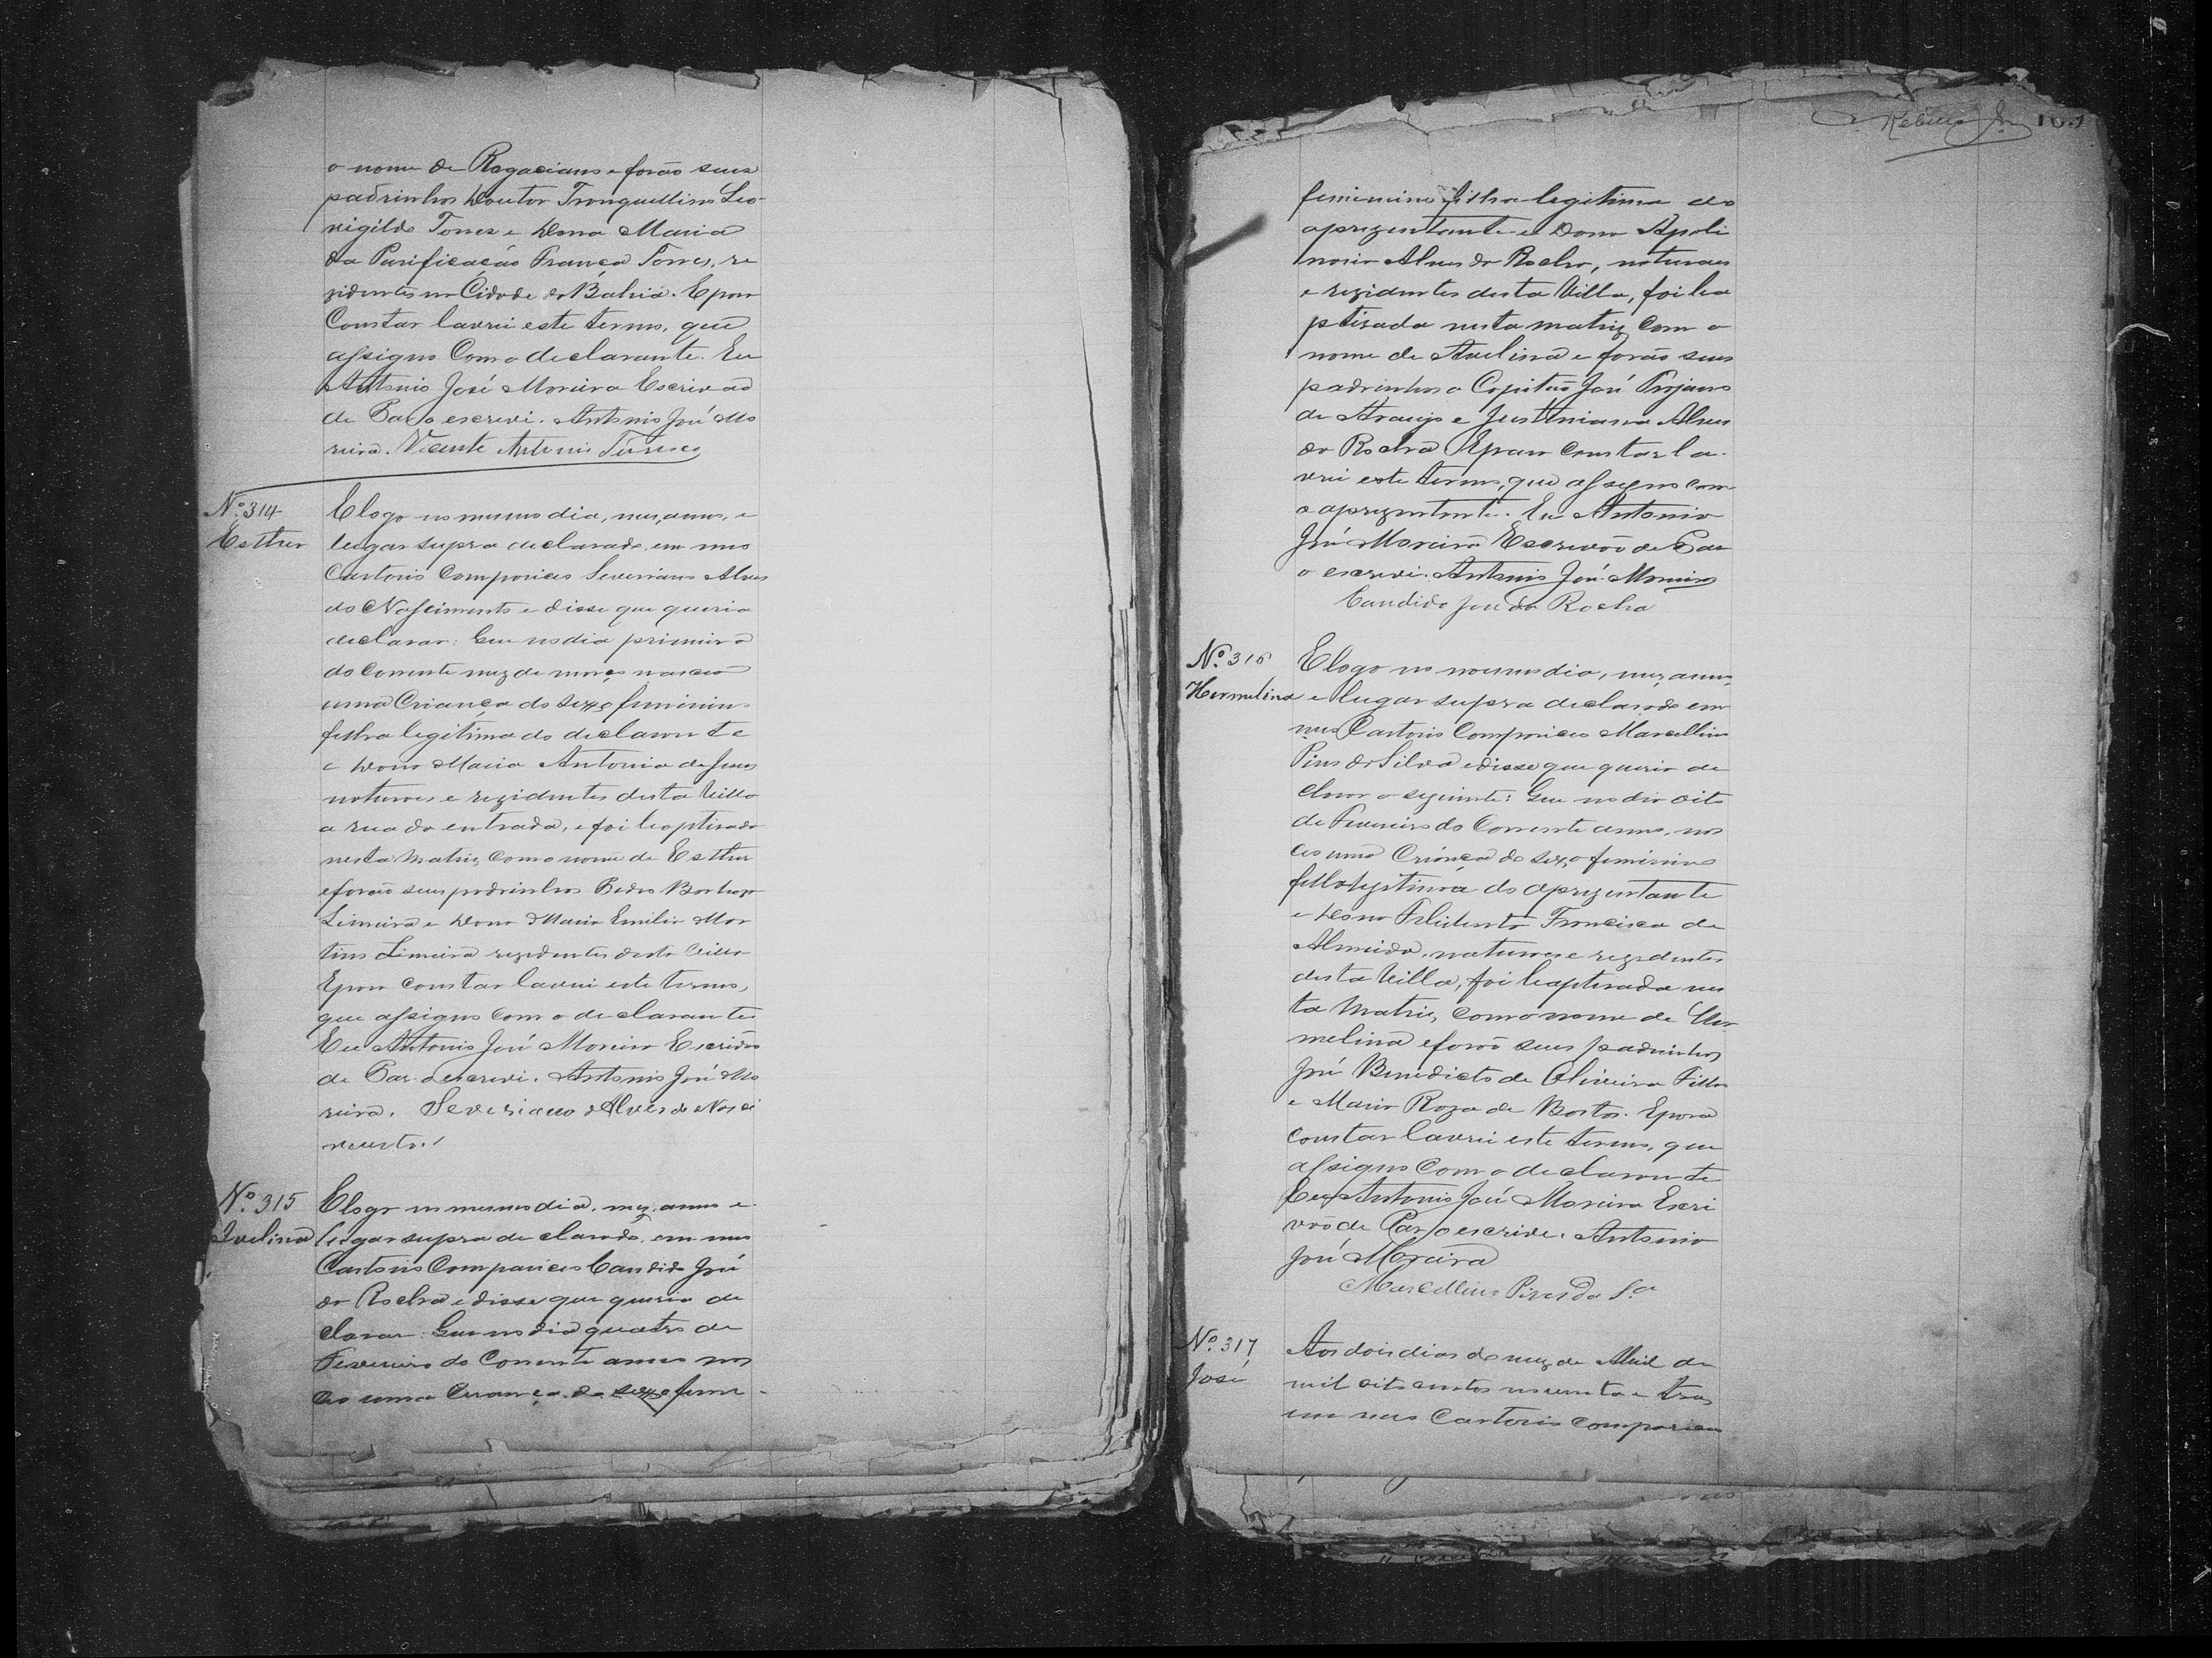 o nome de Rogaciano e forão seus
padrinhos Doutor Tronquillino Leo-
vigildo Torres e Dona Maria
da Purificação França Torres, re
zidentes na Cidade da Bahia. E para
Constar lavrei este termo, que
assigno Com o declarante. Eu
Antonio José Moreira Escrivão
de Paz o escrevi. Antonio José Mo
reira. Vicente Antonio
Nº 314
Esther
E logo no mesmo dia, mez, anno, e
lugar supra declarado, em meu
Cartorio Compareceo Severiano Alves
do Nascimento e disse que queria
declarar: Que no dia primeiro
do Corrente mez de março nasceo
uma Criança do sexo feminino
filha legitima do declarante
e Dona Maria Antonia de Jesus
naturaes e rezidentes desta Villa
a rua da entrada, e foi baptisada
nesta Matriz com o nome de Esther
e forão seus padrinhos Pedro
Limeira e Dona Maria Emilia Mar
tins Limeira rezidentes desta Villa
E para constar lavrei este termo,
que assigno Com o declarante
Eu Antonio José Moreira Escrivão
de Paz o escrevi. Antonio José Mo
reira. Severiano Alves do Nasci
mento.
Nº 315
Avelina
E logo no mesmo dia, mez, anno e
lugar supra declarado, em meu
Cartorio Compareceo Candido José
da Rocha e disse que queria de
clarar: Que no dia quatro de
Fevereiro do Corrente anno nas
ceo uma Criança do sexo femi-
Rebello Jr
feminino filha legitima do
aprezentante e Dona Apoli
naria Alves da Rocha, naturaes
e rezidentes desta Villa, foi ba
ptisada nesta matriz Com o
nome de Avelina e forão seus
padrinhos o Capitão José Trajano
de Araujo e Justiniana Alves
da Rocha E para Constar la-
vrei este termo, que assigno com
o aprezentante. Eu Antonio
José Moreira Escrivão de Paz
o escrevi. Antonio José Moreira
Candido José da Rocha
Nº 316
Hermelina
E logo no mesmo dia, mez, anno,
e lugar supra declarado em
meu Cartorio Compareceo Marcellino
Pires da Silva e disse que queria de
clarar o seguinte: Que no dia oito
de Fevereiro do Corrente anno, nas
ceo uma Criança do sexo feminino
filha legitima do aprezentante
e Dona Francisca de
Almeida, naturaes e rezidentes
desta Villa, foi baptisada nes
ta Matriz, com o nome de Her
melina e forão seus padrinhos
José Benedicto de Oliveira Filho
e Maria Roza de Bastos. E para
Constar lavrei este termo, que
assigno Com o declarante
Eu Antonio José Moreira Escri
vão de Paz o escrivi. Antonio
José Moreira
Marcellino Pires da Sª
Nº 317
José
Aos dois dias do mez de Abril de
mil oito centos noventa e tres
em meu Cartorio compareceu